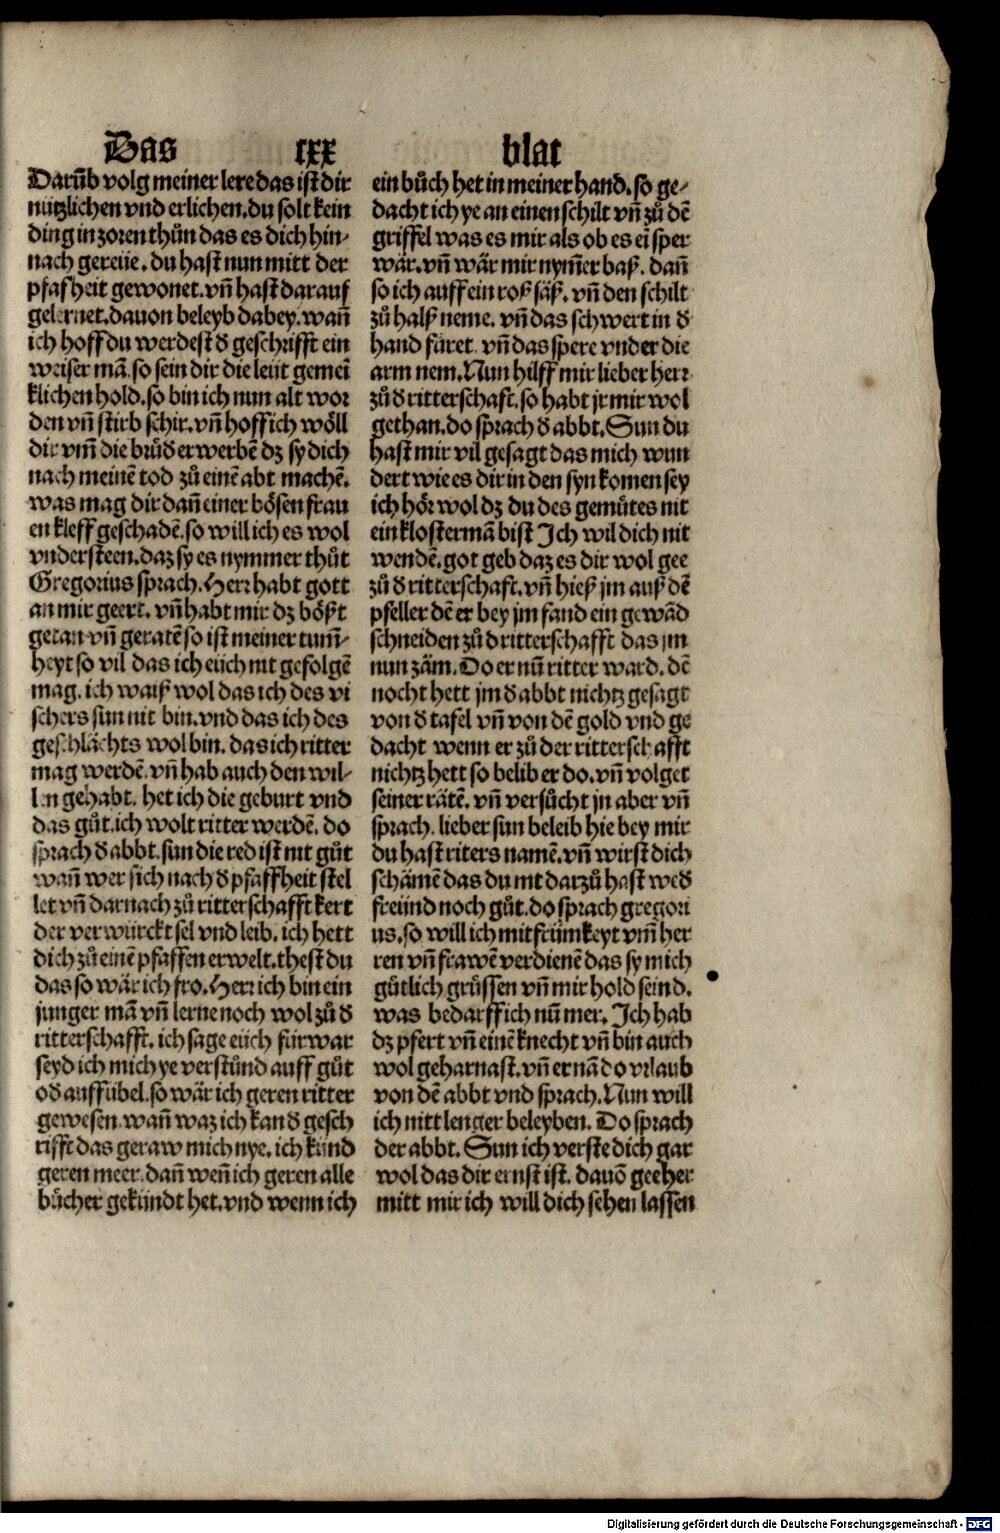 Das lxx blat
Darūb volg meiner lere das ist dir
nützlichen vnd erlichen. du solt kein
ding in zoren thůn das es dich hin⸗
nach gereüe. du hast nun mitt der
pfafheit gewonet. vn̄ hast darauf
gelernet. dauon beleyb dabey. wan̄
ich hoff du werdest d̕ geschrifft ein
weiser mā. so sein dir die leüt gemeī
klichen hold. so bin ich nun alt wor
den vn̄ stirb schir. vn̄ hoff ich wöll
dir vm̄ die brůd̕ erwerbē dz sy dich
nach meinē tod zů einē abt machē.
was mag dir dan̄ einer bösen frau
en kleff geschadē. so will ich es wol
vndersteen. daz sy es nymmer thůt
Gregorius sprach. Herr habt gott
an mir geert. vn̄ habt mir dz bößt
getan vn̄ geratē so ist meiner tum̄⸗
heyt so vil das ich eüch nit gefolgē
mag. ich waiß wol das ich des vi
schers sun nit bin. vnd das ich des
geschlächts wol bin. das ich ritter
mag werdē. vn̄ hab auch den wil⸗
len gehabt. het ich die geburt vnd
das gůt. ich wolt ritter werdē. do
sprach d̕ abbt. sun die red ist nit gůt
wan̄ wer sich nach d̕ pfaffheit stel
let vn̄ darnach zů ritterschafft kert
der verwürckt sel vnd leib. ich hett
dich zů einē pfaffen erwelt. thest du
das so wär ich fro. Herr ich bin ein
junger mā vn̄ lerne noch wol zů d̕
ritterschafft. ich sage eüch fürwar
seyd ich mich ye verstůnd auff gůt
od̕ auff übel. so wär ich geren ritter
gewesen. wan̄ waz ich kan d̕ gesch
rifft das geraw mich nye. ich künd
geren meer. dan̄ wen̄ ich geren alle
bücher gekündt het. vnd wenn ich
ein bůch het in meiner hand. so ge⸗
dacht ich ye an einen schilt vn̄ zů dē
griffel was es mir als ob es eī sper
wär. vn̄ wär mir nym̄er baß. dan̄
so ich auff ein roß säß. vn̄ den schilt
zů halß neme. vn̄ das schwert in d̕
hand füret. vn̄ das spere vnder die
arm nem. Nun hilff mir lieber herr
zů d̕ ritterschaft. so habt jr mir wol
gethan. do sprach d̕ abbt. Sun du
hast mir vil gesagt das mich wun
dert wie es dir in den syn komen sey
ich hör wol dz du des gemütes nit
ein klostermā bist Ich wil dich nit
wendē. got geb daz es dir wol gee
zů d̕ ritterschaft. vn̄ hieß jm auß dē
pfeller dē er bey jm fand ein gewād
schneiden zů d̕ ritterschafft das jm
nun zäm. Do er nū ritter ward. dē
nocht hett jm d̕ abbt nichtz gesagt
von d̕ tafel vn̄ von dē gold vnd ge
dacht wenn er zů der ritterschafft
nichtz hett so belib er do. vn̄ volget
seiner rätē. vn̄ versůcht jn aber vn̄
sprach. lieber sun beleib hie bey mir
du hast riters namē. vn̄ wirst dich
schämē das du nit darzů hast wed̕
freünd noch gůt. do sprach gregori
us. so will ich mit frümkeyt vm̄ her
ren vn̄ frawē verdienē das sy mich
gütlich grüssen vn̄ mir hold seind.
was bedarff ich nū mer. Ich hab
dz pfert vn̄ einē knecht vn̄ bin auch
wol geharnast. vn̄ er nā do vrlaub
von dē abbt vnd sprach. Nun will
ich nitt lenger beleyben. Do sprach
der abbt. Sun ich verste dich gar
wol das dir ernst ist. dauō gee her
mitt mir ich will dich sehen lassen
Digitalisierung gefördert durch die Deutsche Forschungsgemeinschaft - DFG